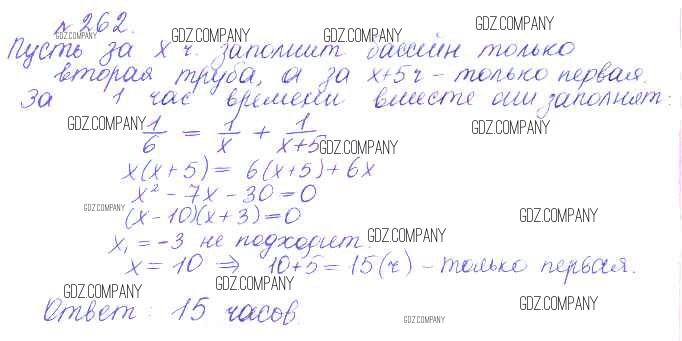 №262.
Пусть за x ч. заполнит бассейн только
вторая труба, а за x+5ч - только первая.
За 1 час времени вместе они заполнят:
1/6 = 1/x + 1/x+5
x(x+5) = 6(x+5)+6x
x² - 7x - 30 = 0
(x-10)(x+3)=0
x₁ = -3 не подходит.
x = 10 ⇒ 10+5 = 15(ч) - только первая.
Ответ: 15 часов.
GDZ.COMPANY
GDZ.COMPANY
GDZ.COMPANY
GDZ.COMPANY
GDZ.COMPANY
GDZ.COMPANY
GDZ.COMPANY
GDZ.COMPANY
GDZ.COMPANY
GDZ.COMPANY
GDZ.COMPANY
GDZ.COMPANY
GDZ.COMPANY
GDZ.COMPANY